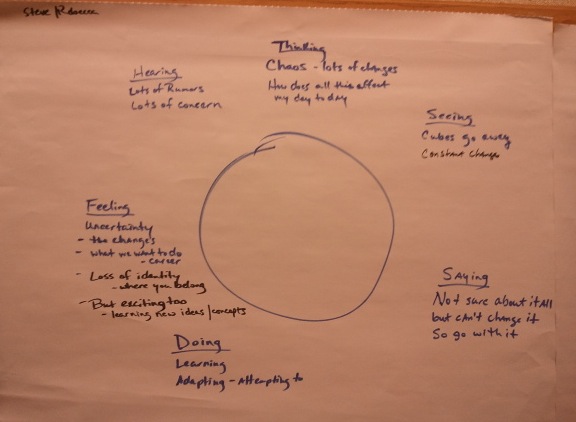 Steve / Rebecca
Thinking
Chaos - lots of changes
How does all this effect
my day to day
Hearing
Lots of Rumors
Lots of concern
Seeing
Cubes go away
Constant change
Feeling
Uncertainty
- the changes
- what we want to do
- career
- Loss of identity
- where you belong
- But exciting too
- learning new ideas / concepts
Saying
Not sure about it all
but can't change it
So go with it
Doing
Learning
Adapting - Attempting to